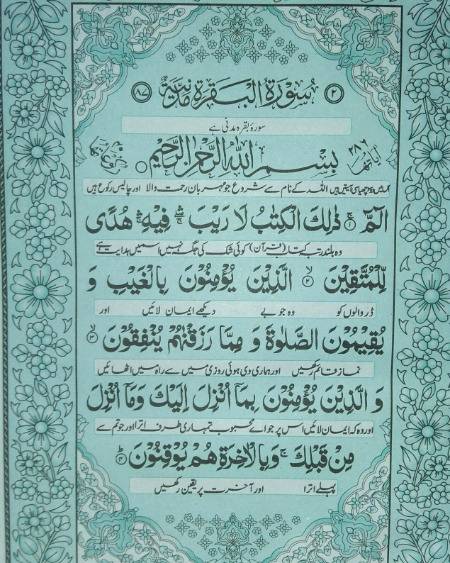 ٢ سُوْرَةُ الْبَقَرَةِ مَدَنِيَّةٌ ٨٧
سورۂ بقرہ مدنی ہے
بِسْمِ اللهِ الرَّحْمٰنِ الرَّحِيْمِ ٢٨٦
اللہ کے نام سے شروع جو مہربان رحمت والا اور چالیس رکوع ہیں
الٓمّٓ ۚ۱ ذٰلِكَ الْكِتٰبُ لَا رَيْبَ ۛۚ فِيْهِ ۛۚ هُدًى
وہ بلند رتبہ کتاب (قرآن) کوئی شک کی جگہ نہیں اس میں ہدایت ہے
لِّلْمُتَّقِيْنَ ۙ۲ الَّذِيْنَ يُؤْمِنُوْنَ بِالْغَيْبِ وَ
ڈر والوں کو وہ جو بے دیکھے ایمان لائیں اور
يُقِيْمُوْنَ الصَّلٰوةَ وَ مِمَّا رَزَقْنٰهُمْ يُنْفِقُوْنَ ۙ۳
نماز قائم رکھیں اور ہماری دی ہوئی روزی میں سے ہماری راہ میں اٹھائیں
وَ الَّذِيْنَ يُؤْمِنُوْنَ بِمَاۤ اُنْزِلَ اِلَيْكَ وَمَاۤ اُنْزِلَ
اور وہ کہ ایمان لائیں اس پر جو اے محبوب تمہاری طرف اترا اور جو تم سے
مِنْ قَبْلِكَ ۚ وَبِالْاٰخِرَةِ هُمْ يُوْقِنُوْنَ ؕ۴
پہلے اترا اور آخرت پر یقین رکھیں